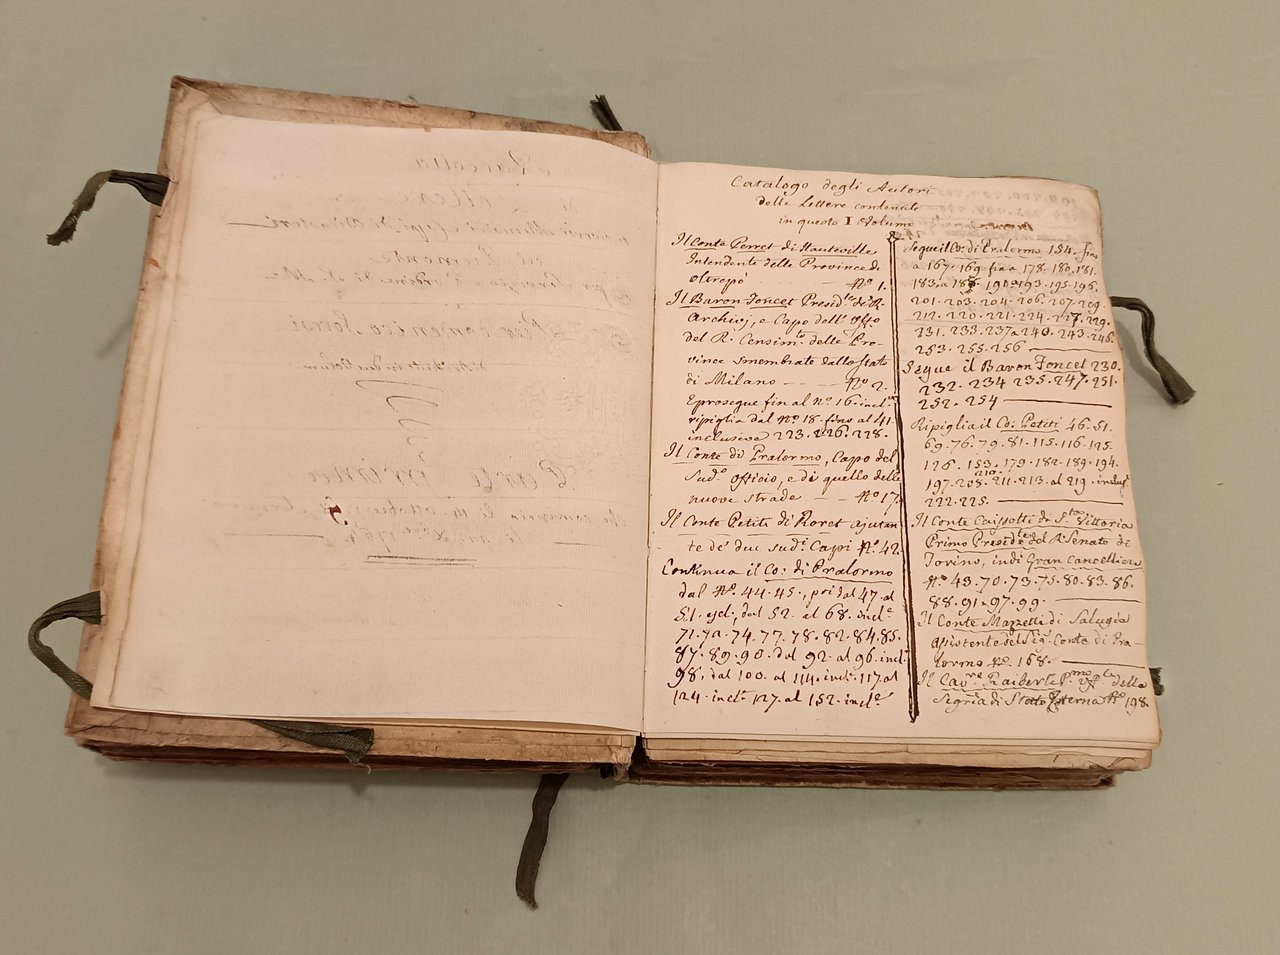 Catalogo degli Autori
delle Lettere contenute
in questo I Volume
Il Conte Ferret di Hauteville
Intendente delle Province di
oltrepò Nº. 1.
Il Baron Foncet Presid.te de' R.
Archivj, e Capo dell' Uffo
del R. Censim.to delle Pro-
vince smembrate dallo stato
di Milano - - - - Nº. 2.
E prosegue fin al Nº. 16. incl.ve
ripiglia dal Nº. 18. fino al 41.
inclusive 223. 226. 228.
Il Conte di Pralormo, Capo del
Sud.º Officio, e di quello delle
nuove strade - - Nº. 17.
Il Conte Petiti di Roret ajutan-
te de' due sud.i Capi Nº. 42.
Continua il Co: di Pralormo
dal Nº. 44. 45., poi dal 47. al
51. incl., dal 52. al 68. incl.e
71. 72. 74. 77. 78. 82. 84. 85.
87. 89. 90. dal 92. al 96. incl.
98. dal 100. al 114. incl. 117. al
124. incl. 127. al 152. incl.e
Segue il Co: di Pralormo 154. fino
a 167. 169. fin a 178. 180. 181.
183. a 190. 193. 195. 196.
201. 203. 204. 206. 207. 209.
212. 220. 221. 224. 227. 229.
231. 233. 237 a 240. 243. 246.
253. 255. 256
Segue il Baron Foncet 230.
232. 234 235. 247. 251.
252. 254
Ripiglia il Co: Petiti 46. 51.
69. 76. 79. 81. 115. 116. 125.
126. 153. 179. 182. 189. 194.
210.
197. 208. 211. 213. al 219.
222. 225.
Il Conte Caissotti di S.ta Vittoria
Primo Presid.te del R. Senato di
Torino, indi Gran Cancelliere
Nº. 43. 70. 73. 75. 80. 83. 86.
88. 91. 97. 99.
Il Conte Mazzetti di Salugia
assistente del Sig.r Conte di Pra-
lormo Nº. 168.
Il Cav.re Raiberti P.mo Uff.le della
Segria di Stato Esterna Nº. 198.